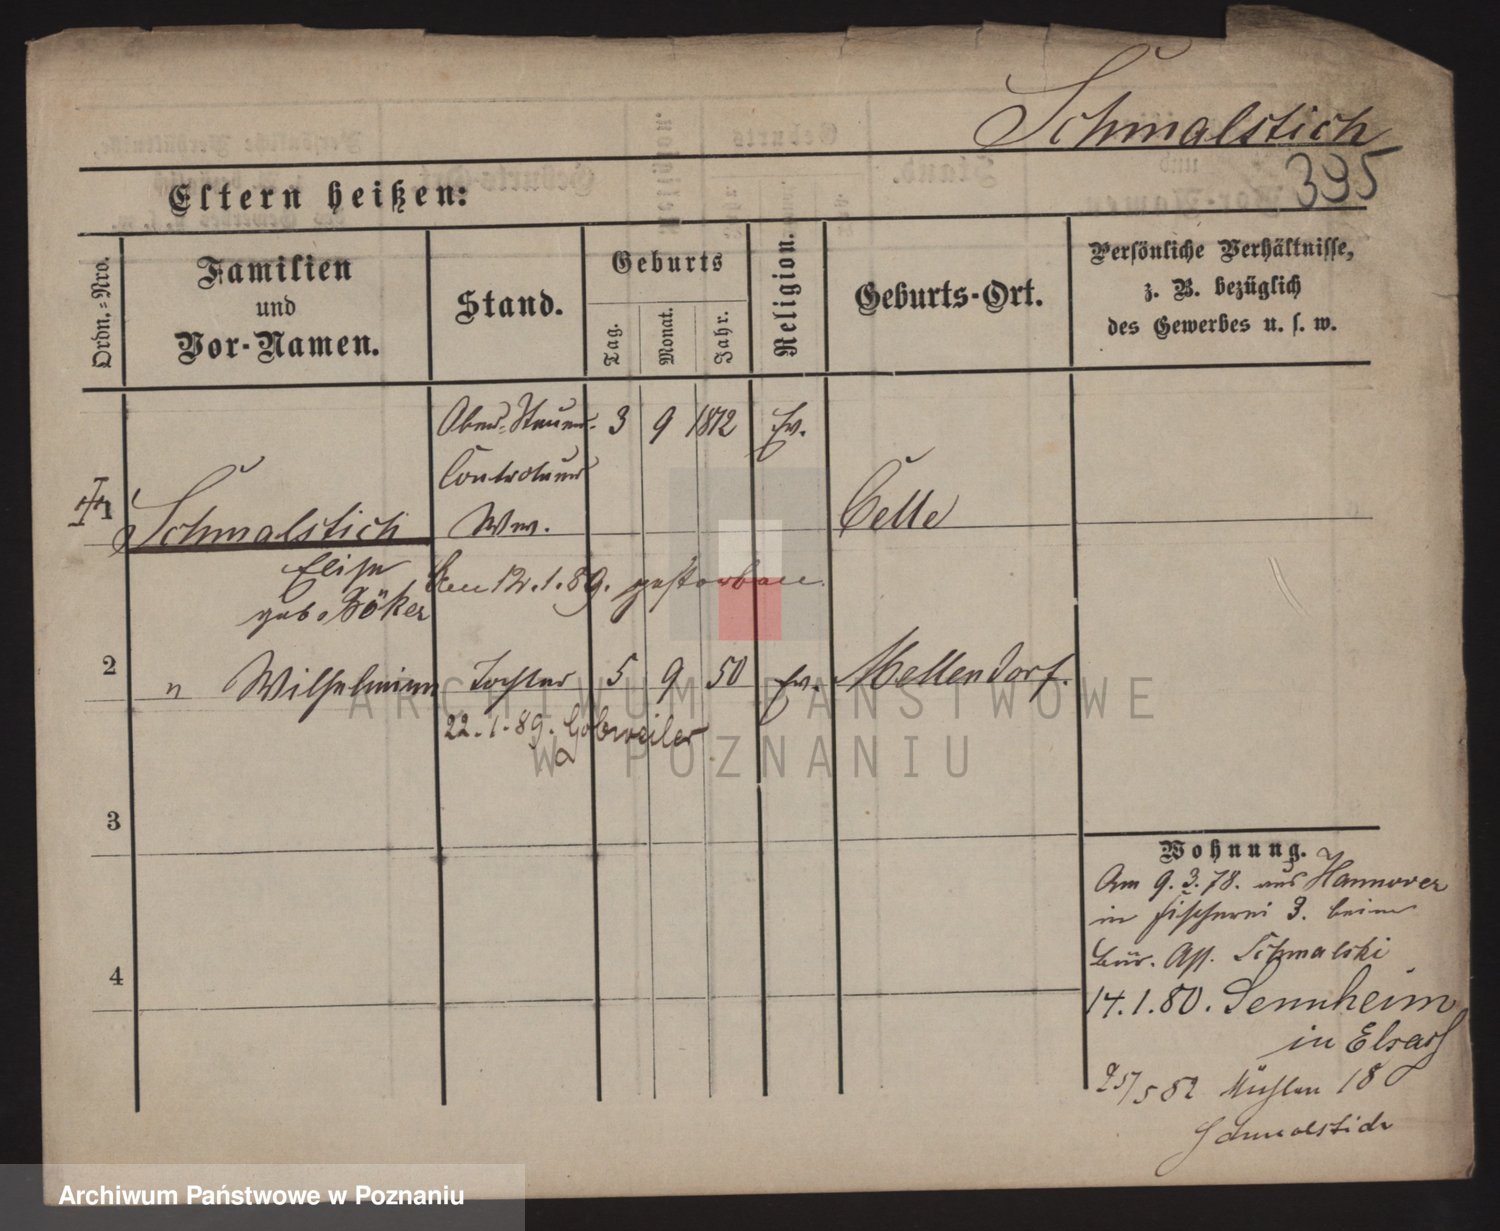 Schmalstich
395
Eltern heißen:
Ordn.-Nro.
Familien
und
Vor-Namen.
Stand.
Geburts
Tag.
Monat.
Jahr.
Religion.
Geburts-Ort.
Persönliche Verhältnisse,
z. B. bezüglich
des Gewerbes u. s. w.
1
Schmalstich
Elise
geb. Böker
Ober-Steuer-
Controleur
Ww.
3 9 1812 Ev.
Celle
den 12.1.89. gestorben.
2
" Wilhelmine Tochter 5 9 50 Ev. Mellendorf.
22.1.89. Gebweiler
3
4
Wohnung.
Am 9.3.78. aus Hannover
in Fischerei 3. beim
Bür. Ass. Schmalski
14.1.80. Sennheim
in Elsass
25/5 82 Mühlen 18
Schmalstich
ARCHIWUM PAŃSTWOWE
W POZNANIU
Archiwum Państwowe w Poznaniu